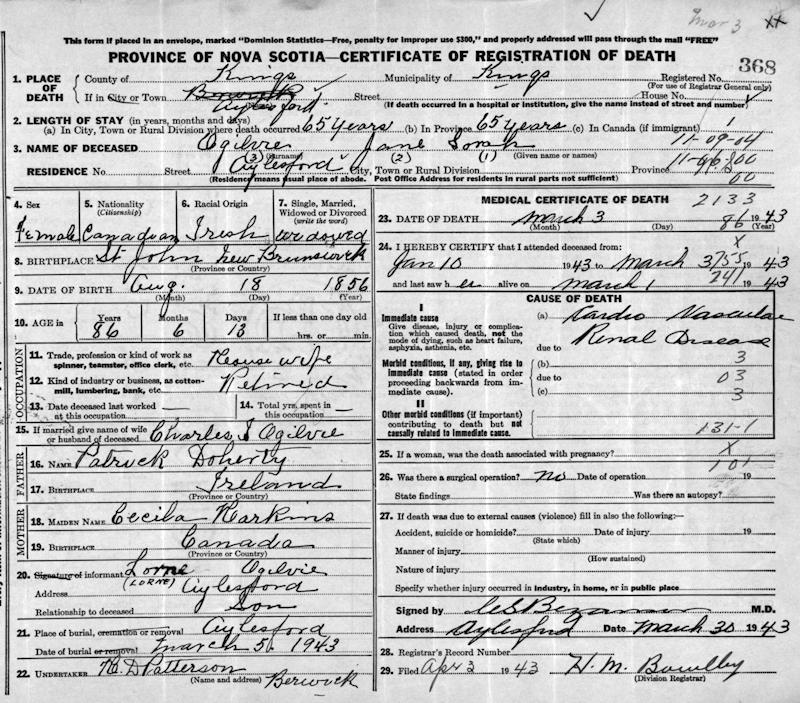 Mar 3 xx
This form if placed in an envelope, marked "Dominion Statistics—Free, penalty for improper use $300," and properly addressed will pass through the mail "FREE"
PROVINCE OF NOVA SCOTIA—CERTIFICATE OF REGISTRATION OF DEATH
368
1. PLACE OF DEATH County of Kings Municipality of Kings Registered No.
(For use of Registrar General only)
If in City or Town Berwick Aylesford Street House No.
(If death occurred in a hospital or institution, give the name instead of street and number)
2. LENGTH OF STAY (in years, months and days)
(a) In City, Town or Rural Division where death occurred 65 years (b) In Province 65 years (c) In Canada (if immigrant) 1
3. NAME OF DECEASED Ogilvie Jane Sorah 11-09-04
(3) (Surname) (2) (1) (Given name or names)
RESIDENCE No. Street Aylesford City, Town or Rural Division Province N.S. 11-46-00
(Residence means usual place of abode. Post Office Address for residents in rural parts not sufficient) 00
4. Sex 5. Nationality (Citizenship) 6. Racial Origin 7. Single, Married, Widowed or Divorced (write the word)
Female Canadian Irish widowed
8. BIRTHPLACE St John New Brunswick
(Province or Country)
9. DATE OF BIRTH Aug. 18 1856
(Month) (Day) (Year)
10. AGE in Years Months Days If less than one day old
86 6 13 hrs. or min.
OCCUPATION
11. Trade, profession or kind of work as spinner, teamster, office clerk, etc. House wife
12. Kind of industry or business, as cotton-mill, lumbering, bank, etc. Retired
13. Date deceased last worked at this occupation — 14. Total yrs. spent in this occupation —
15. If married give name of wife or husband of deceased Charles I Ogilvie
FATHER
16. NAME Patrick Doherty
17. BIRTHPLACE Ireland
(Province or Country)
MOTHER
18. MAIDEN NAME Cecila Harkins
19. BIRTHPLACE Canada
(Province or Country)
20. Signature of informant Lorne Ogilvie
(LORNE)
Address Aylesford
Relationship to deceased Son
21. Place of burial, cremation or removal Aylesford
Date of burial or removal March 5, 1943
22. UNDERTAKER H. D Patterson
(Name and address) Berwick
MEDICAL CERTIFICATE OF DEATH 2133
23. DATE OF DEATH March 3 86 1943
(Month) (Day) (Year)
24. I HEREBY CERTIFY that I attended deceased from: X
Jan 10 1943 to March 3 755 1943
and last saw h er alive on March 1 241 1943
CAUSE OF DEATH
I
Immediate cause
Give disease, injury or complication which caused death, not the mode of dying, such as heart failure, asphyxia, asthenia, etc.
(a) Cardio Vascular
due to Renal Disease
Morbid conditions, if any, giving rise to immediate cause (stated in order proceeding backwards from immediate cause).
(b) 3
due to 03
(c) 3
II
Other morbid conditions (if important) contributing to death but not causally related to immediate cause.
131-1
25. If a woman, was the death associated with pregnancy? X
101
26. Was there a surgical operation? No Date of operation 19
State findings Was there an autopsy?
27. If death was due to external causes (violence) fill in also the following:—
Accident, suicide or homicide? Date of injury 19
(State which)
Manner of injury
(How sustained)
Nature of injury
Specify whether injury occurred in industry, in home, or in public place
Signed by M.D.
Address Aylesford Date March 30 1943
28. Registrar's Record Number
29. Filed Apr 2 1943 H. M. Bowlby
(Division Registrar)